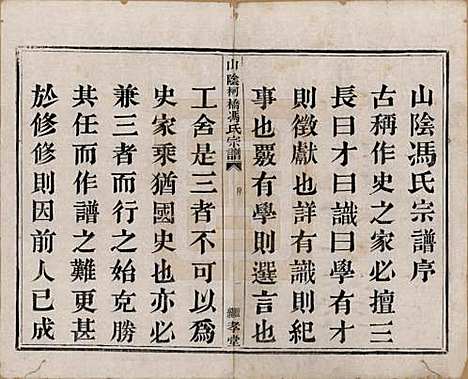 山陰馮氏宗譜序
古稱作史之家必擅三
長曰才曰識曰學有才
則徵獻也詳有識則紀
事也覈有學則選言也
山陰柯橋馮氏宗譜
序
一
繼孝堂
工舍是三者不可以為
史家乘猶國史也亦必
兼三者而行之始克勝
其任而作譜之難更甚
於修修則因前人已成